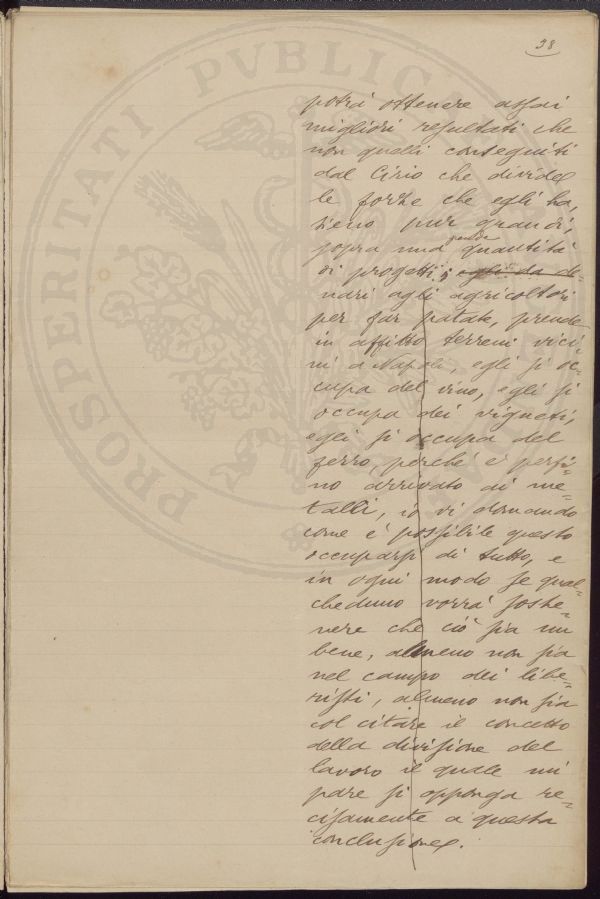 38
potrà ottenere assai
migliori resultati che
non quelli conseguiti
dal Cirio che divide
le forze che egli ha,
sieno pur grandi,
sopra una grande quantità
di progetti; egli da de-
nari agli agricoltori
per far patate, prende
in affitto terreni vici-
ni a Napoli, egli si oc-
cupa del vino, egli si
occupa dei vigneti,
egli si occupa del
ferro, perché è perfi-
no arrivato ai me-
talli, io vi domando
come è possibile questo
occuparsi di tutto, e
in ogni modo se qual-
cheduno vorrà soste-
nere che ciò sia un
bene, almeno non sia
nel campo dei libe-
risti, almeno non sia
col citare il concetto
della divisione del
lavoro il quale mi
pare si opponga re-
cisamente a questa
conclusione.
PROSPERITATI PVBLICAE